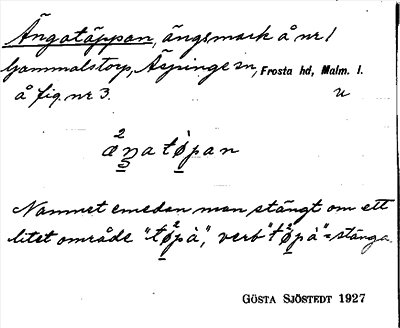 Ängatäppan, ängsmark å nr 1
Gammalstorp, Äspinge sn, Frosta hd, Malm. l.
å fig. nr 3. u
æ²ŋatø̣pan
Namnet emedan man stängt om ett
litet område "tø̣²pà", verb "tø̣²pà" = stänga.
GÖSTA SJÖSTEDT 1927